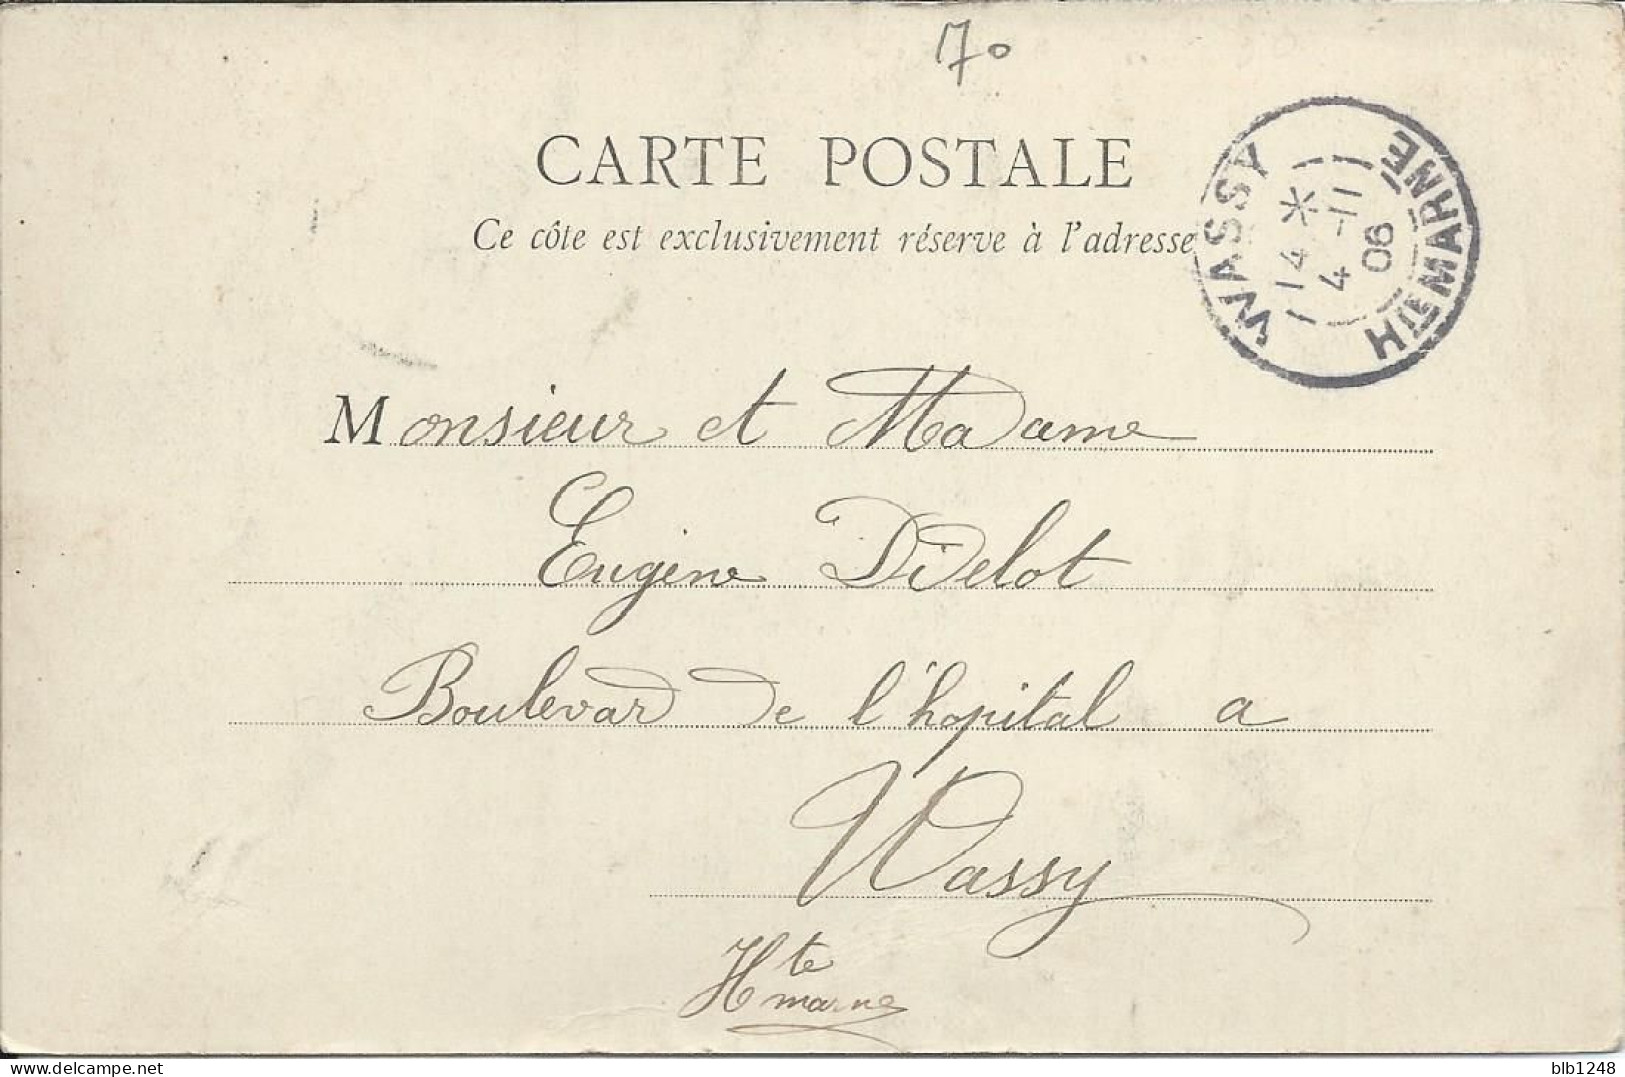 70
CARTE POSTALE
Ce côte est exclusivement réserve à l'adresse
WASSY
14 *
4 -11
06
HTE MARNE
Monsieur et Madame
Eugène Didelot
Boulevard de l'hopital a
Wassy
Hte marne
delcampe.net
blb1248